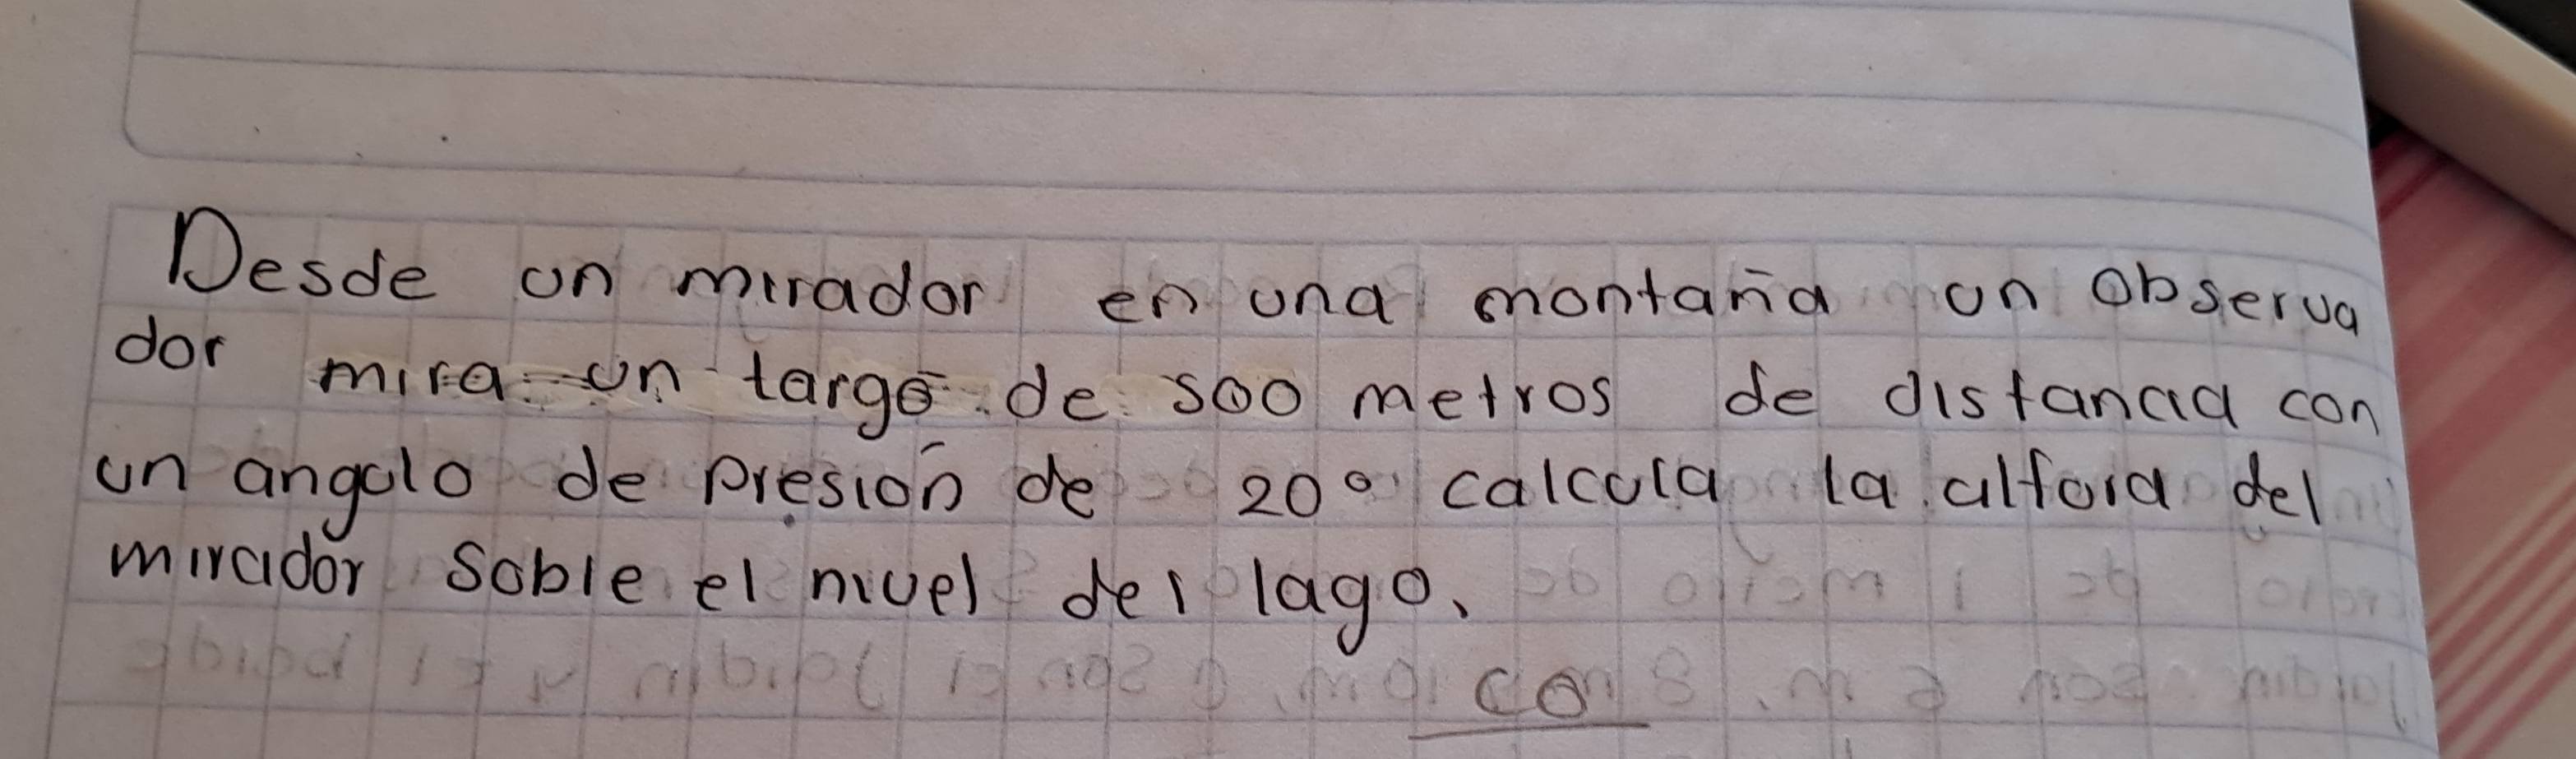 Desde un mirador en una montaña un observa
dor mira un targo de 500 metros de distancia con
un angulo de presión de 20° calcula la altura del
mirador soble el nivel del lago.
co